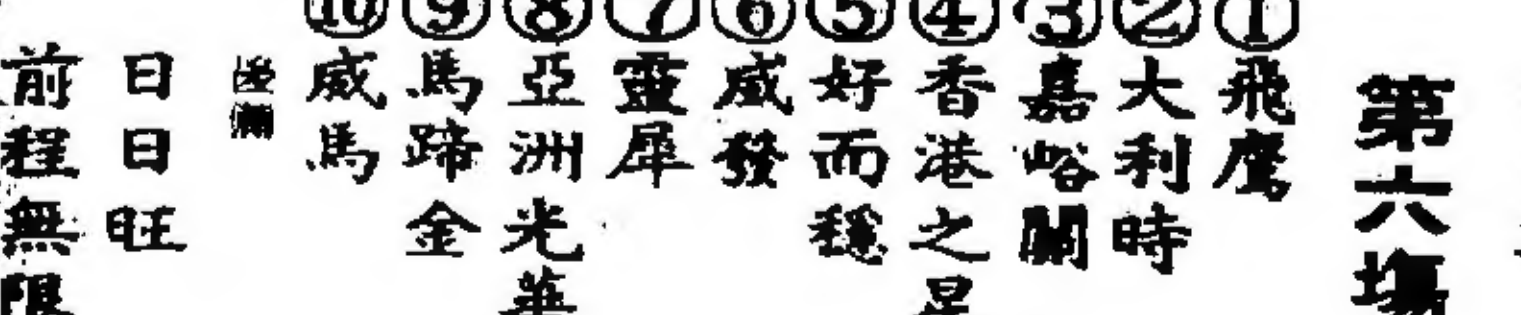 第六場
①飛鷹
②大利時
③嘉峪關
④香港之星
⑤好而穩
⑥威發
⑦靈犀
⑧亞洲光華
⑨馬蹄金
⑩威馬
日日旺
前程無限